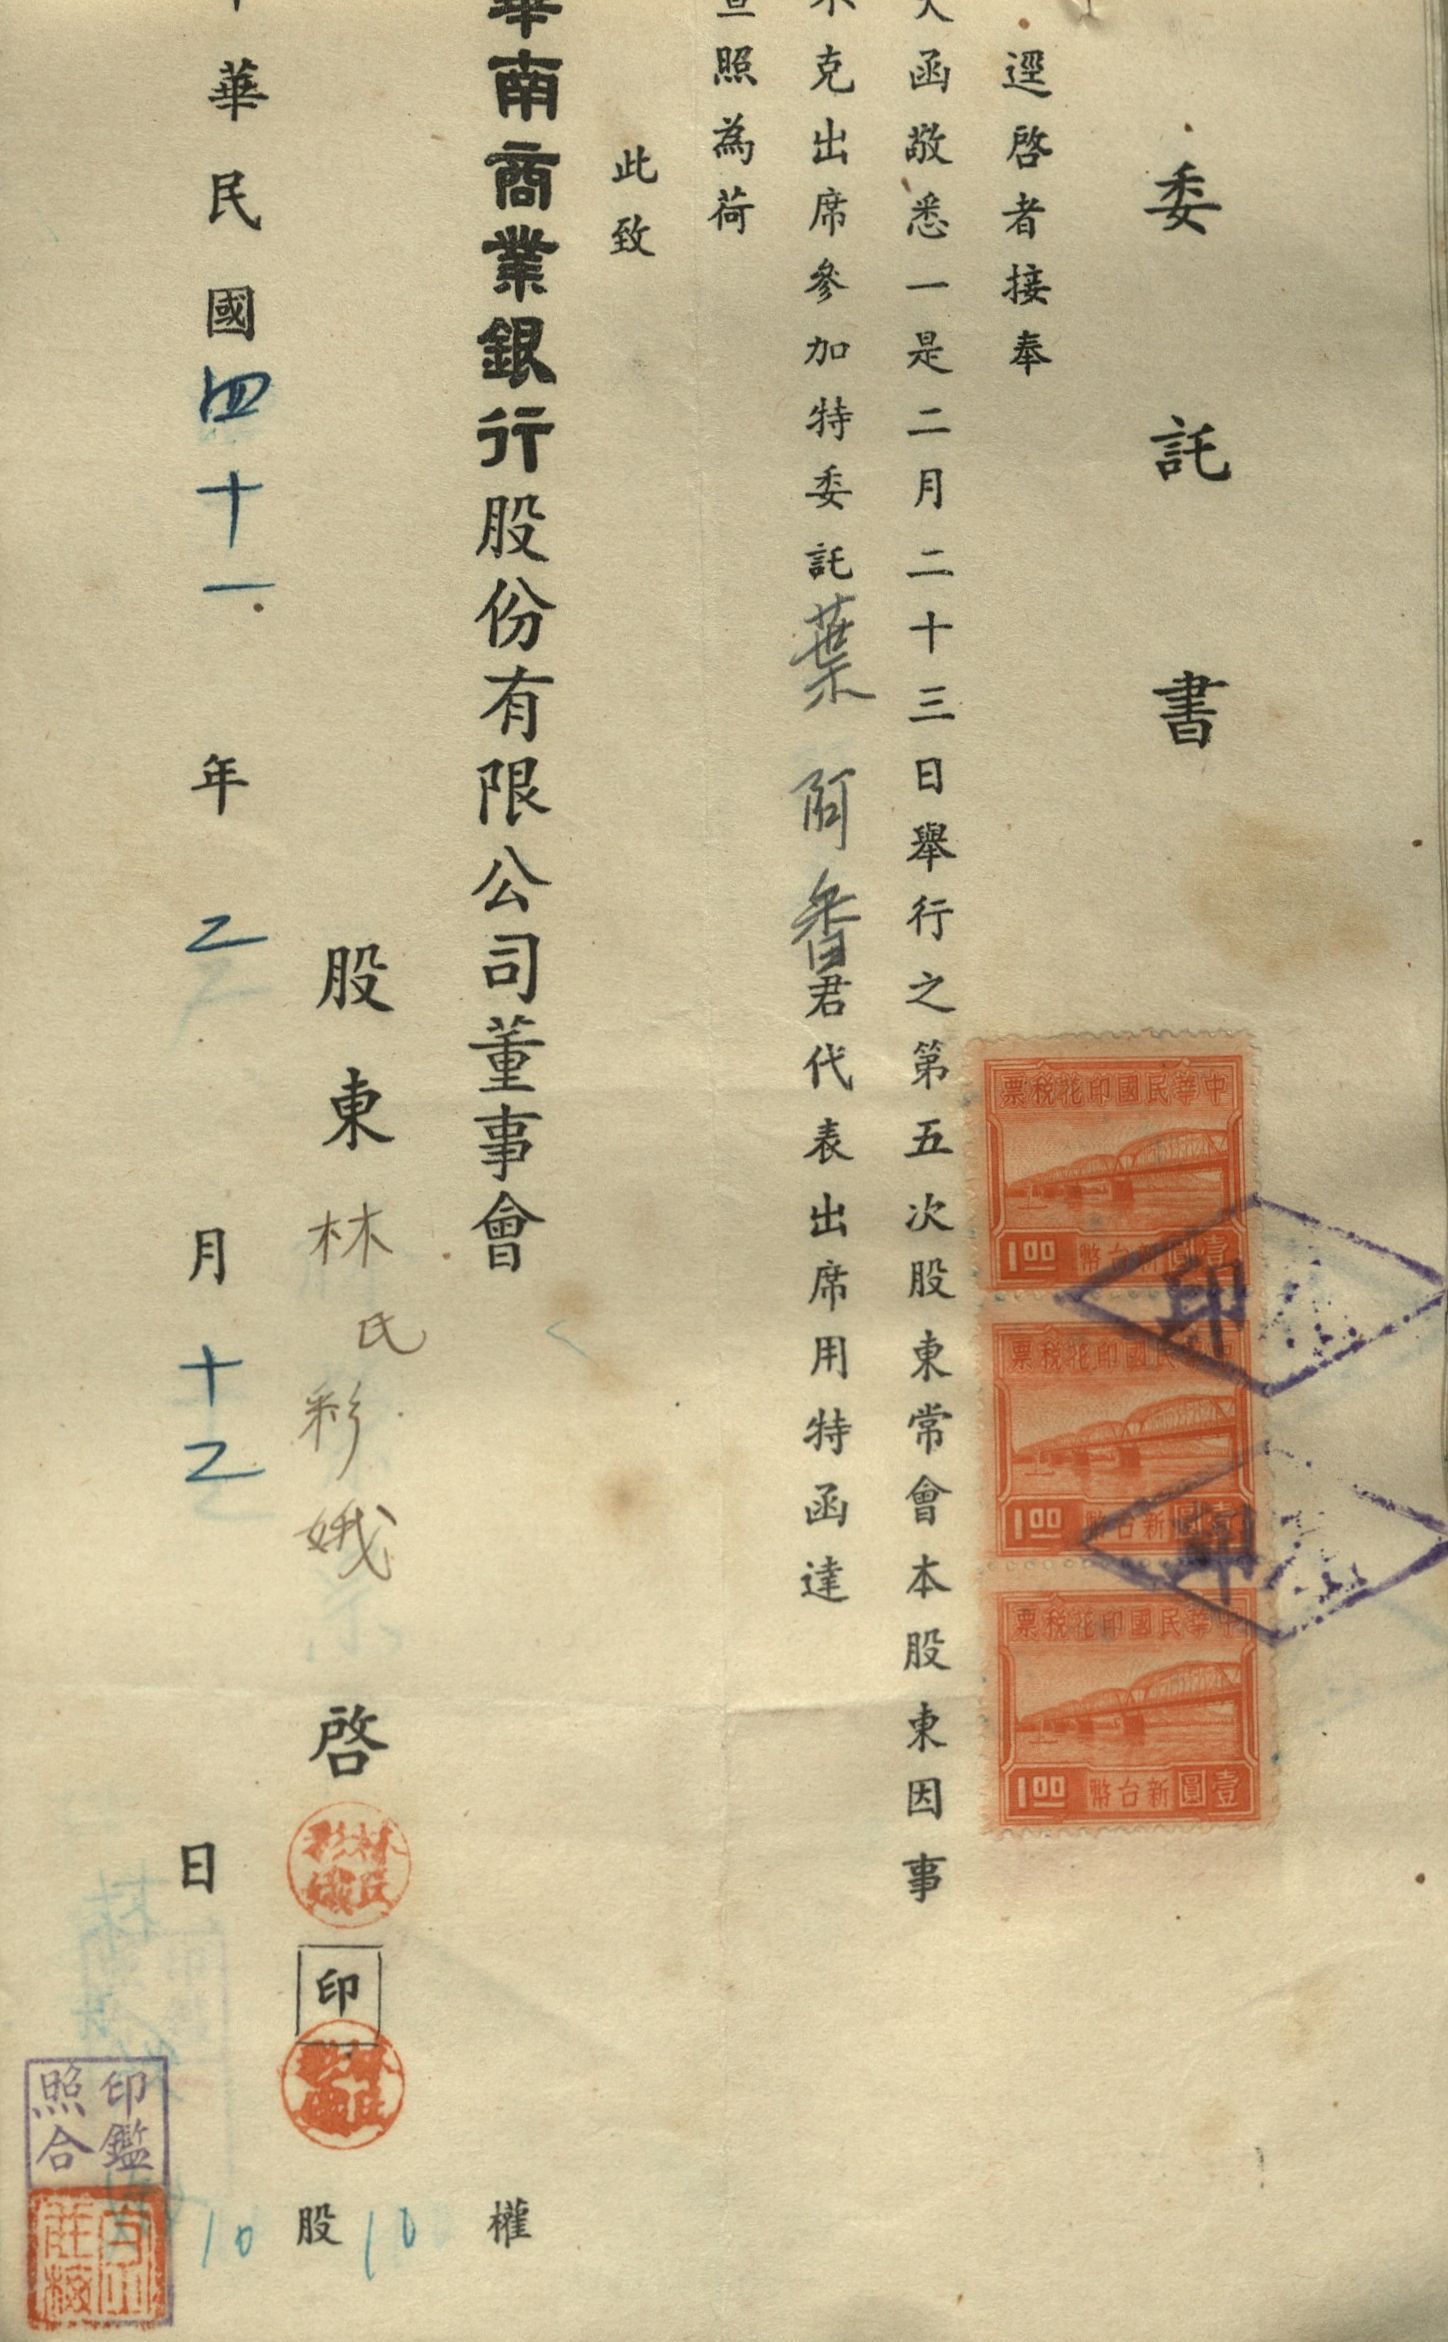 委託書
逕啓者接奉
大函敬悉一是二月二十三日舉行之第五次股東常會本股東因事
不克出席參加特委託葉阿君代表出席用特函達
查照為荷
此致
華南商業銀行股份有限公司董事會
股東林氏彩娥啓
印
股10權
10
華民國四十一年乙月十乙日
中華民國印花稅票
1.00 新台幣壹圓
中華民國印花稅票
1.00 新台幣壹圓
中華民國印花稅票
1.00 新台幣壹圓
印
印
林氏彩娥
印鑑照合